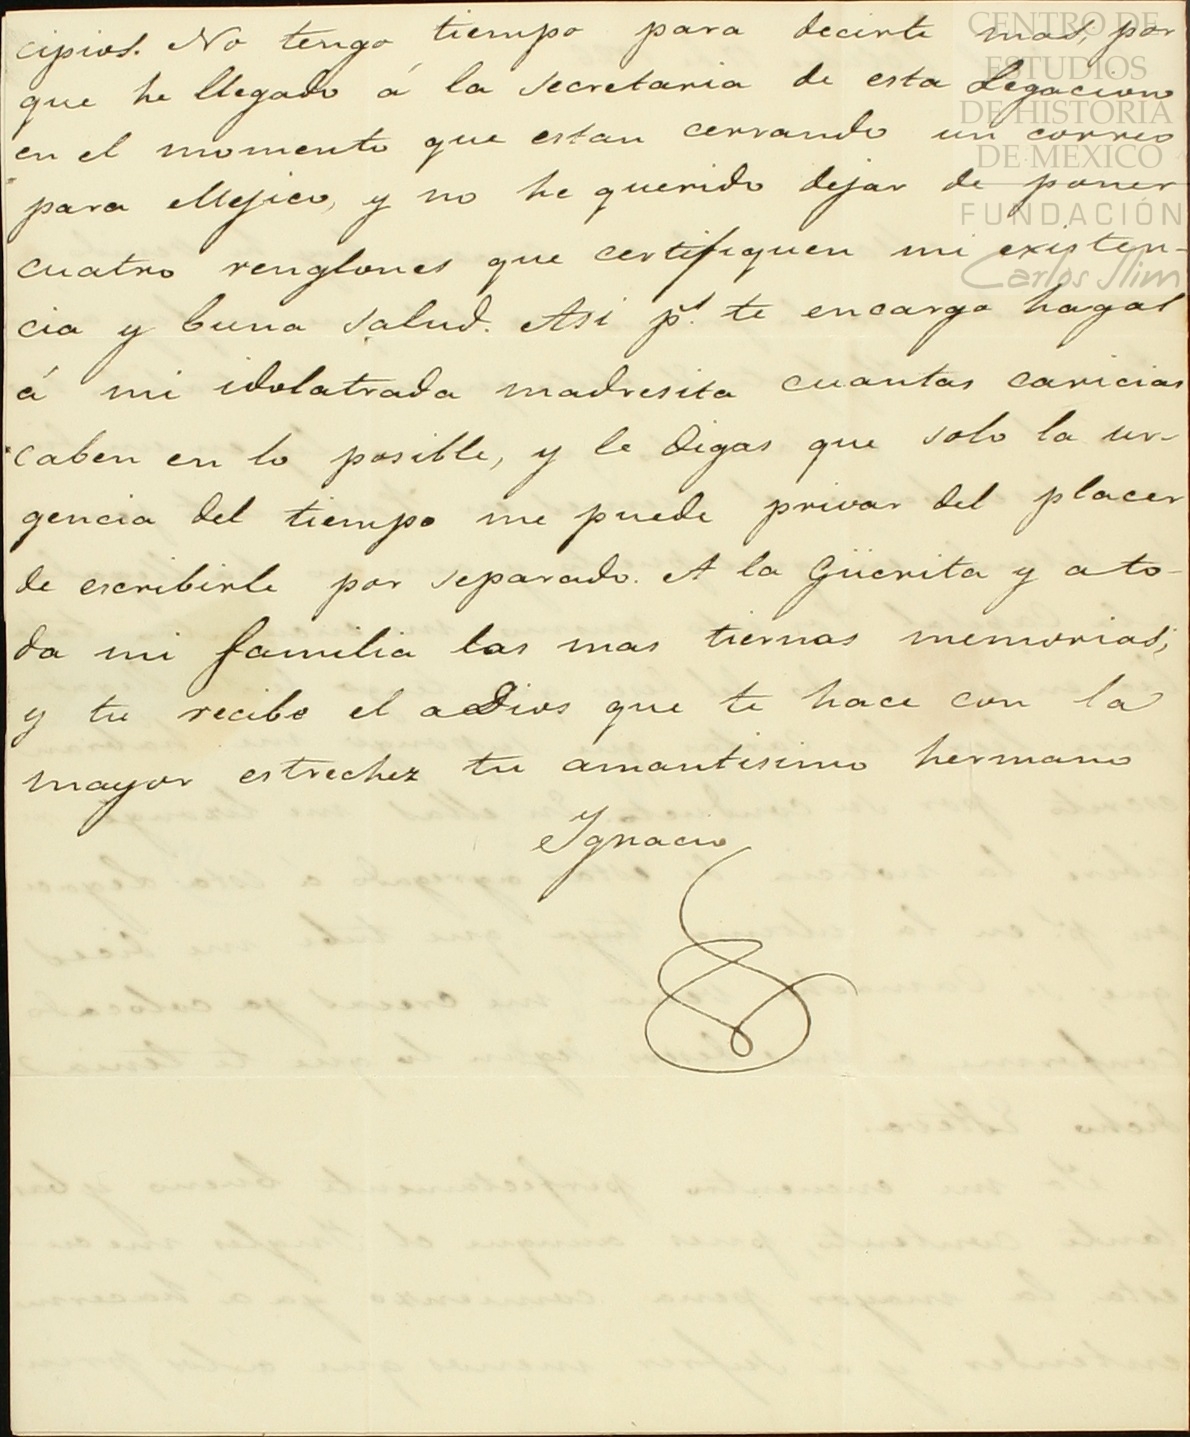 cipios. No tengo tiempo para decirte mas, por
que he llegado á la secretaria de esta Legacion
en el momento que estan cerrando un correo
para Mejico, y no he querido dejar de poner
cuatro renglones que certifiquen mi existen-
cia y buena salud. Asi ps. te encargo hagas
á mi idolatrada madresita cuantas caricias
caben en lo posible, y le digas que solo la ur-
gencia del tiempo me puede privar del placer
de escribirle por separado. A la Güerita y a to-
da mi familia las mas tiernas memorias;
y tu recibe el adios que te hace con la
mayor estrechez tu amantisimo hermano
Ignacio
CENTRO DE
ESTUDIOS
DE HISTORIA
DE MEXICO
FUNDACIÓN
Carlos Slim